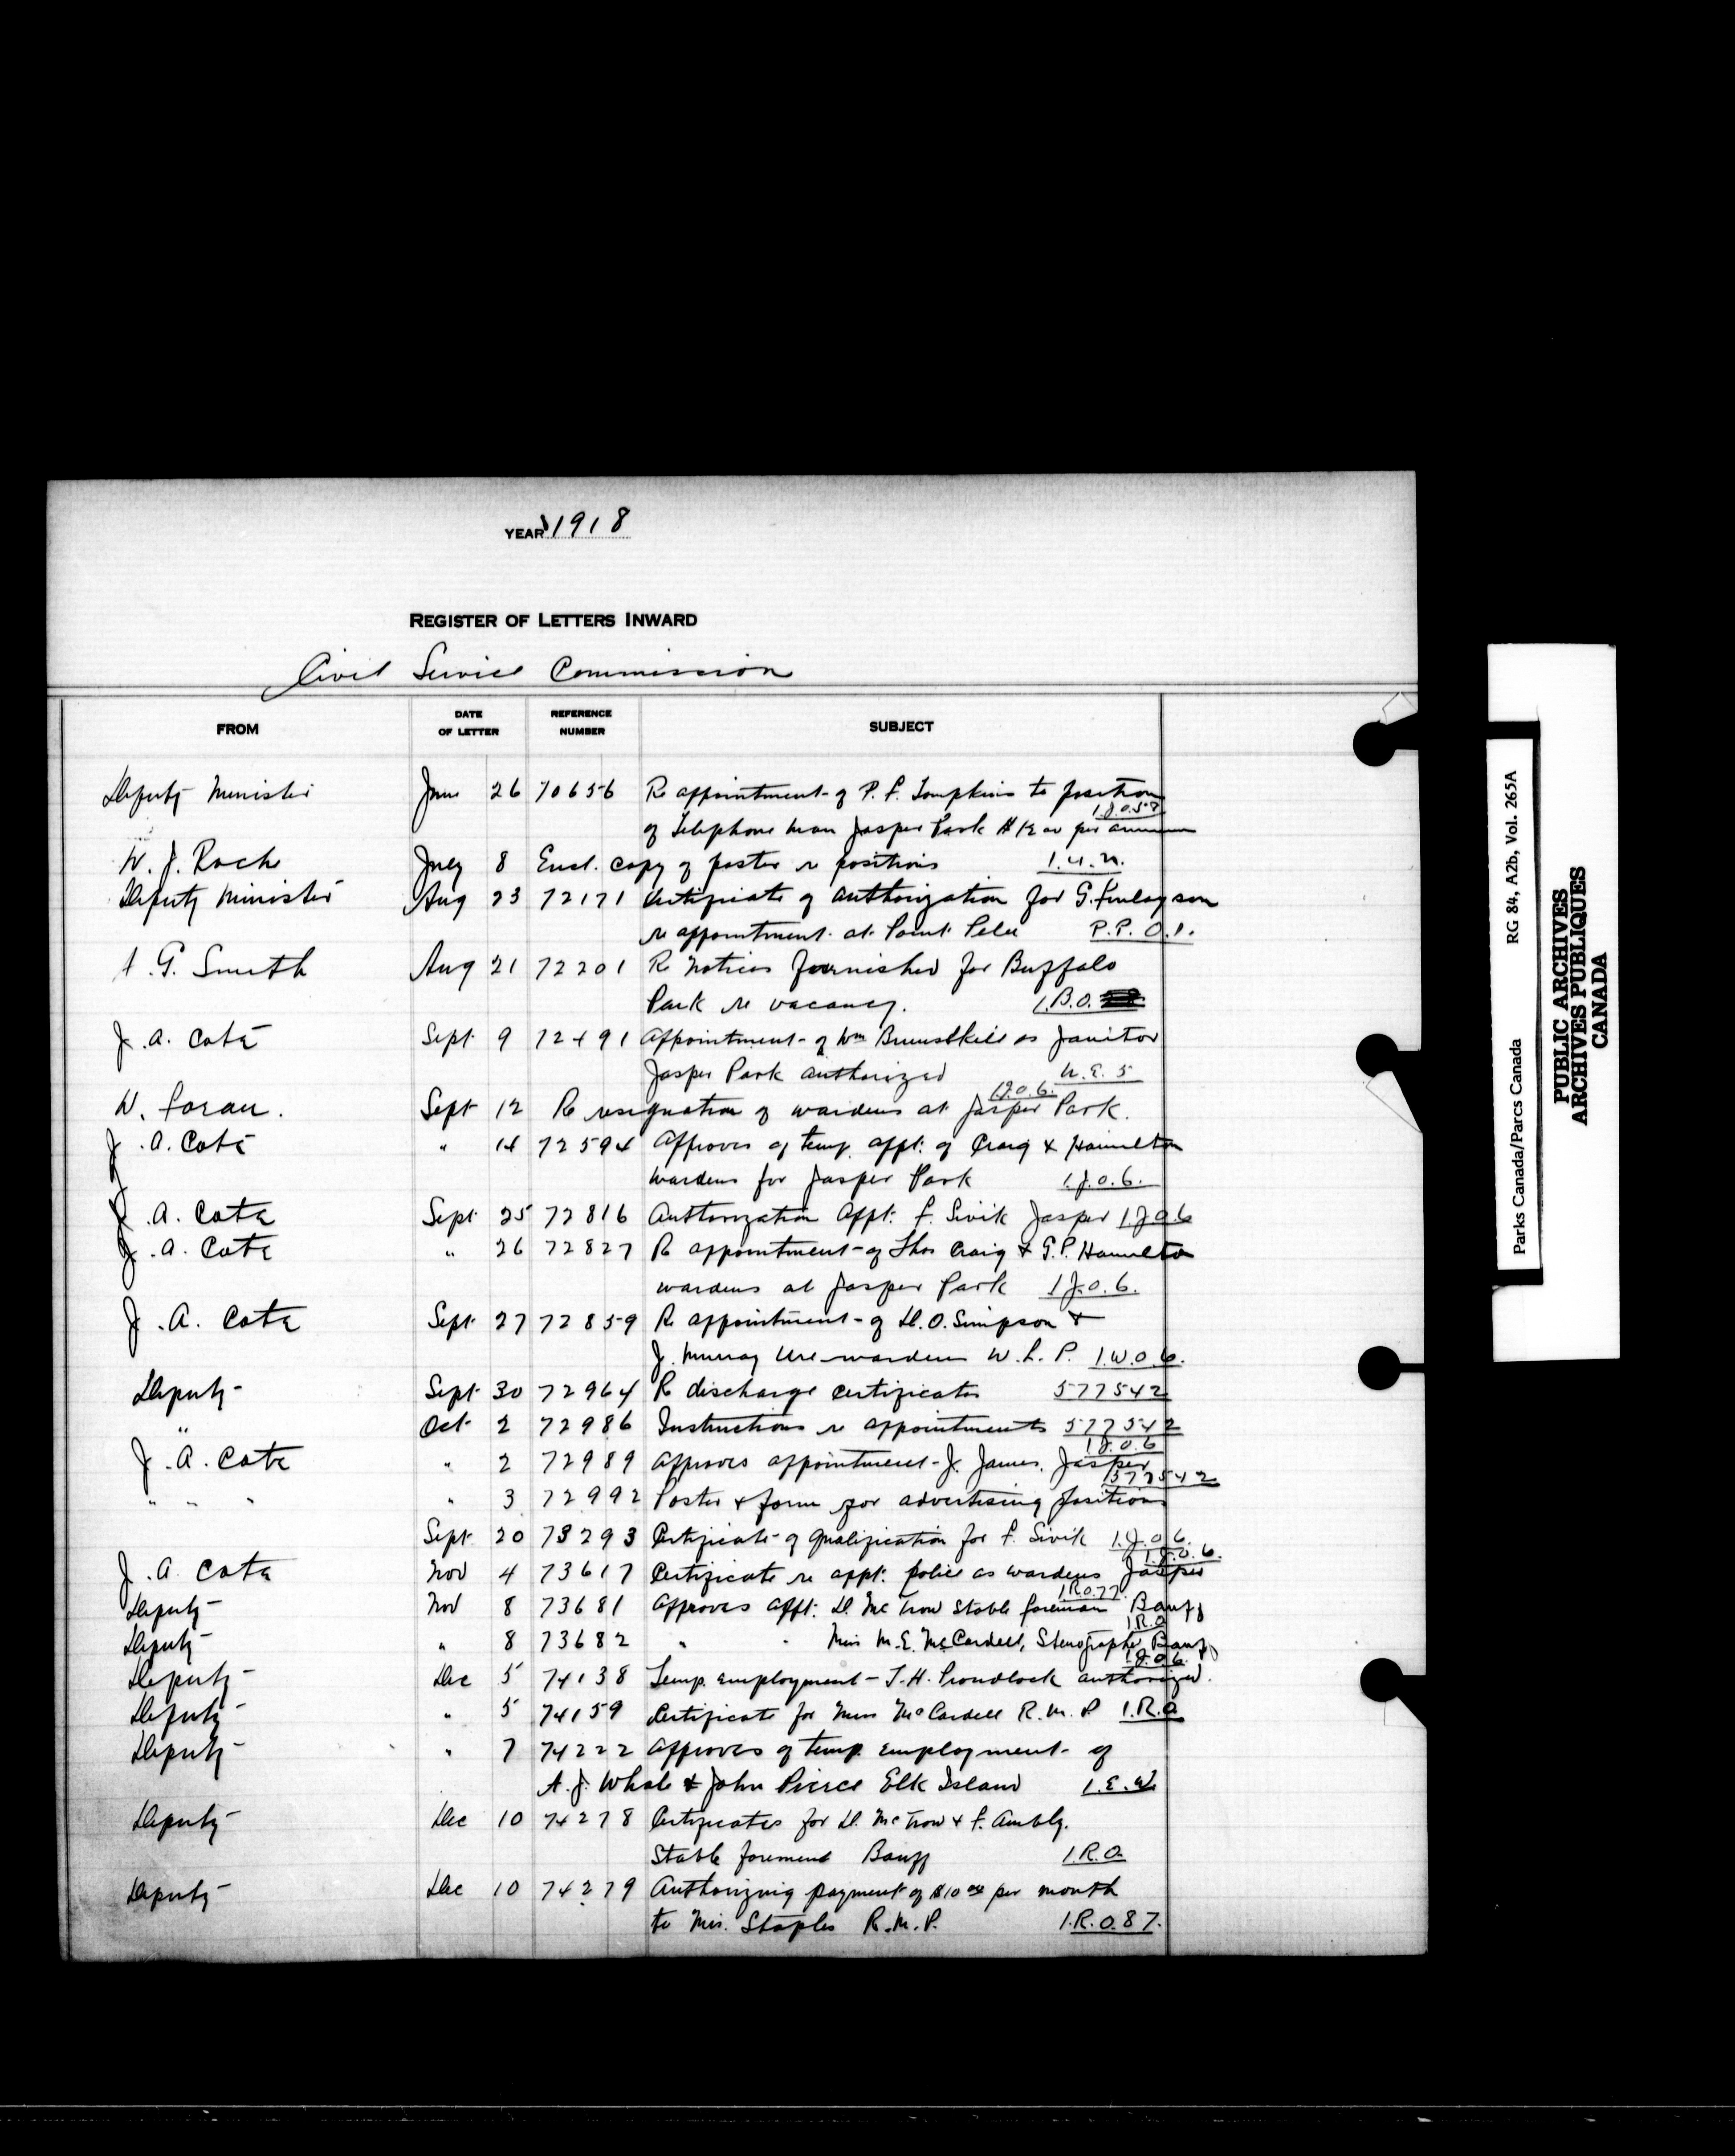 YEAR 1918
REGISTER OF LETTERS INWARD
Civil Service Commission
FROM DATE OF LETTER REFERENCE NUMBER SUBJECT
Deputy Minister June 26 70656 Re appointment of P. F. Tompkins to position
1.J.0.57
of Telephone man Jasper Park per annum
W. J. Roche July 8 Encl. copy of poster re positions 1.U.n.
Deputy Minister Aug 23 72171 Certificate of authorization for G. Finlayson
re appointment at Point Pelee P.P.O.1.
A. G. Smith Aug 21 72201 Re notices furnished for Buffalo
Park re vacancy. 1.B.O.
J. A. Coté Sept 9 72491 Appointment of Wm as Janitor
Jasper Park authorized U.E.5
1J.0.6.
W. Foran. Sept 12 Re resignation of wardens at Jasper Park.
J. A. Coté " 14 72594 Approves of temp. appt. of Craig & Hamilton
wardens for Jasper Park 1.J.0.6.
J. A. Cote Sept 25 72816 Authorization Appt. F. Sivik Jasper 1J06
J. A. Cote " 26 72827 Re appointment of Thos Craig & G.P. Hamilton
wardens at Jasper Park 1J.0.6.
J. A. Cote Sept 27 72859 Re appointment of D. O. Simpson &
J. Murray Ure wardens W. L. P. 1.W.0.6.
Deputy Sept 30 72964 Re discharge certificates 577542
" Oct 2 72986 Instructions re appointments 577542
1J.0.6
J. A. Cote " 2 72989 Approves appointment J. James, Jasper
577542
" " " " 3 72992 Poster & form for advertising positions
Sept 20 73293 Certificate of qualification for F. Sivik 1.J.0.6.
1.J.0.6.
J. A. Cote Nov 4 73617 Certificate re appt. police as wardens Jasper
1R.0.77
Deputy Nov 8 73681 Approves appt. D. McTrow Stable foreman Banff
1R.0
Deputy " 8 73682 " " Miss M. E. McCardell, Stenographer Banff
1J.06.
Deputy Dec 5 74138 Temp. employment - T. H. Proudlock authorized.
Deputy " 5 74159 Certificate for Miss McCardell R. M. P 1.R.0
Deputy " 7 74222 Approves of temp. employment of
A. J. Whale & John Pierce Elk Island 1.E.W.
Deputy Dec 10 74278 Certificates for D. McTrow & F.
Stable foremen Banff 1.R.O.
Deputy Dec 10 74279 Authorizing payment of $10 00 per month
to Mrs. Staples R.M.P. 1.R.0.87.
Parks Canada/Parcs Canada RG 84, A2b, Vol. 265A
PUBLIC ARCHIVES
ARCHIVES PUBLIQUES
CANADA